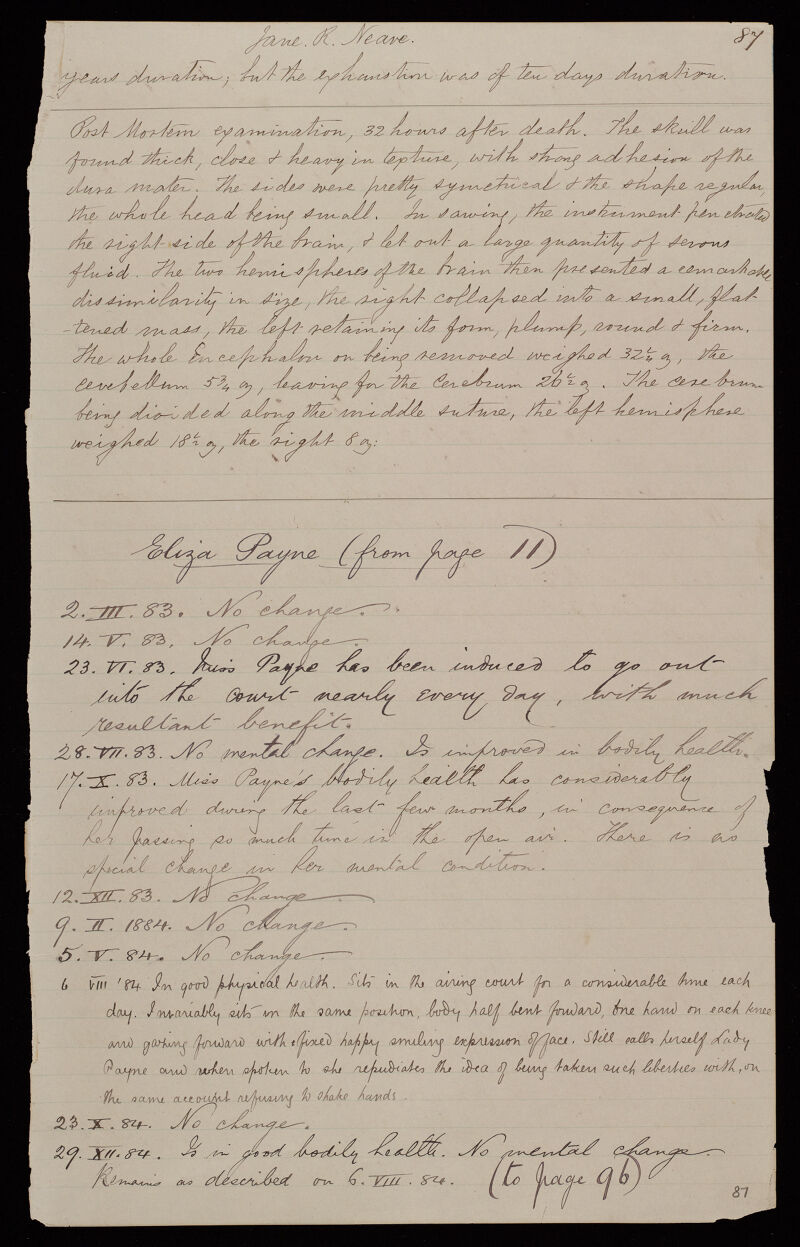 Jane. R. Neave.
87
years duration; but the exhaustion was of ten days duration.
Post Mortem examination, 32 hours after death. The skull was
found thick, close & heavy in texture, with strong adhesion of the
dura mater. The sides were pretty symetrical & the shape regular,
the whole head being small. In sawing, the instrument penetrated
the right side of the brain, & let out a large quantity of serous
fluid. The two hemispheres of the brain then presented a remarkable
dissimilarity in size, the right collapsed into a small, flat
-tened mass, the left retaining its form, plump, round & firm.
The whole Encephalon on being removed weighed 32¼ oz, the
cerebellum 5¾ oz, leaving for the Cerebrum 26½ oz. The cerebrum
being divided along the middle suture, the left hemisphere
weighed 18½ oz, the right 8 oz:
Eliza Payne (from page 11)
2. III. 83. No change.
14. V. 83. No change.
23. VI. 83. Miss Payne has been induced to go out
into the court nearly every day, with much
resultant benefit.
28. VII. 83. No mental change. Is improved in bodily health.
17. X. 83. Miss Payne's bodily health has considerably
improved during the last few months, in consequence of
her passing so much time in the open air. There is no
special change in her mental condition.
12. XII. 83. No change
9. II. 1884. No change.
5. V. 84. No change.
6 VIII '84 In good physical health. Sits in the airing court for a considerable time each
day. Invariably sits in the same position, body half bent forward, one hand on each knee
and gazing forward with fixed happy smiling expression of face. Still calls herself Lady
Payne and when spoken to she repudiates the idea of being taken such liberties with, on
the same account refusing to shake hands.
23. X. 84. No change.
29. XII. 84. Is in good bodily health. No mental change.
Remains as described on 6. VIII. 84. (to page 96)
87